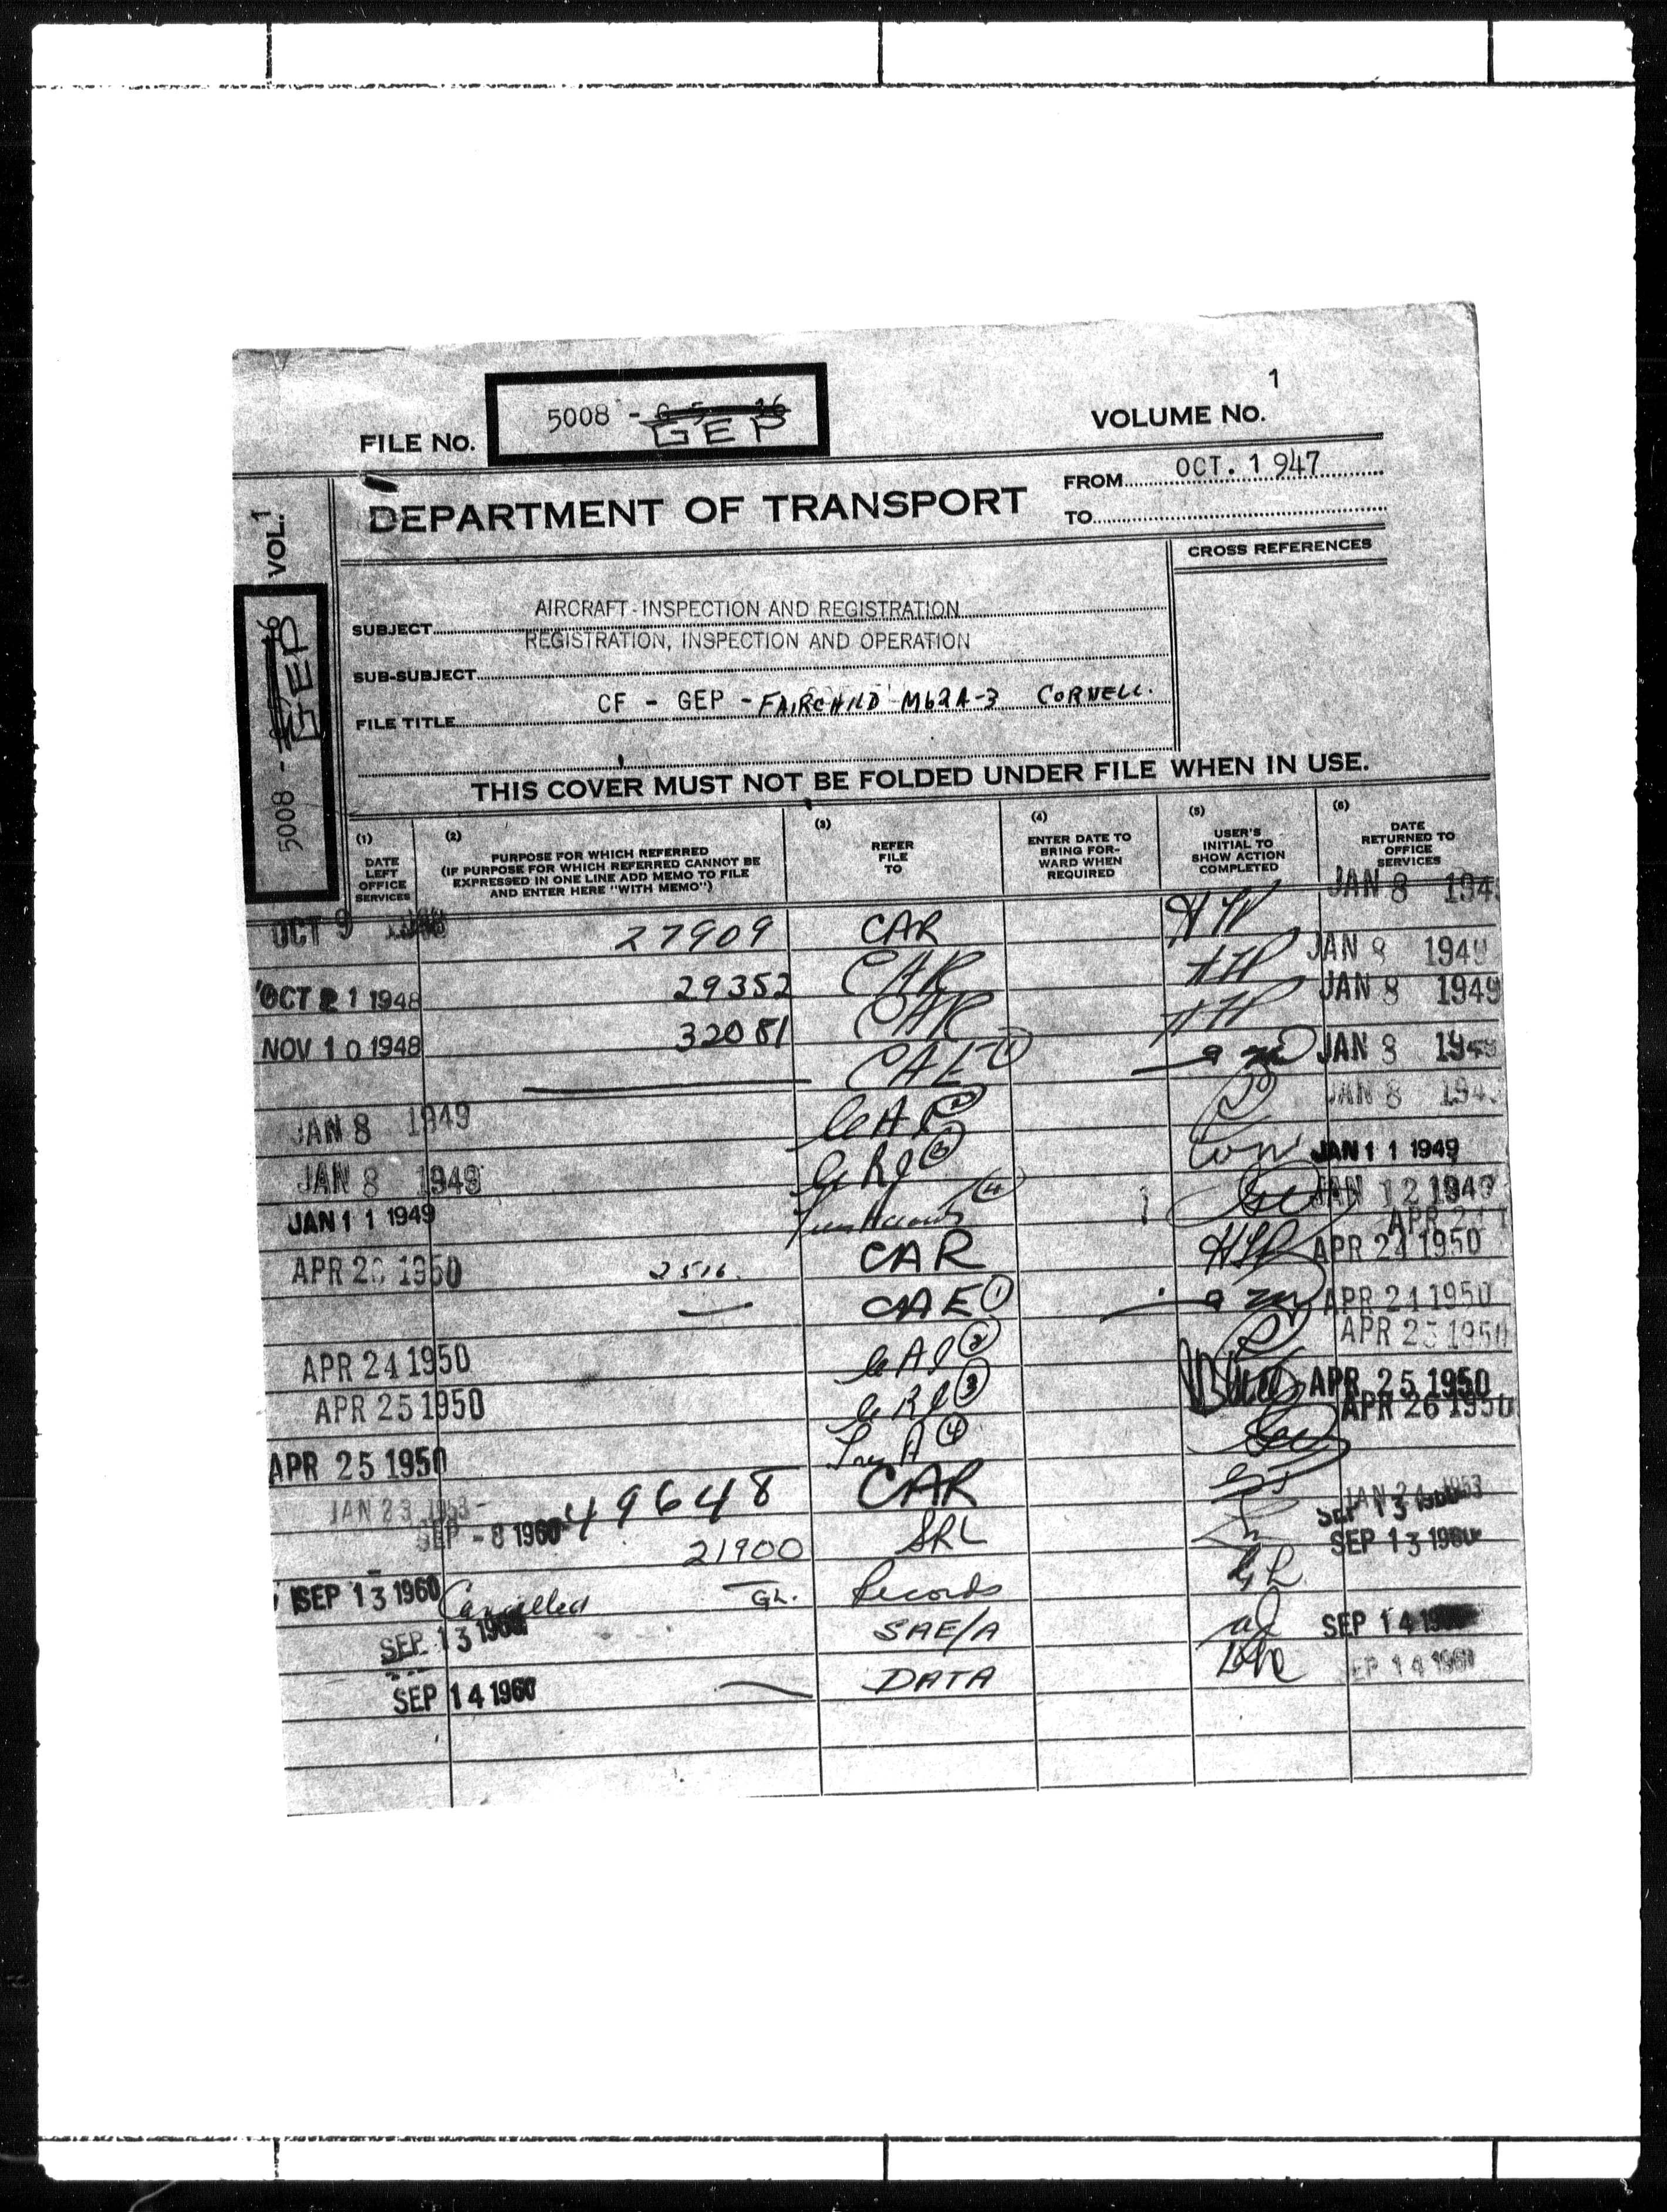 1
5008 - GEP
FILE NO.
VOLUME NO.
FROM OCT. 1 947
DEPARTMENT OF TRANSPORT
TO
VOL. 1
CROSS REFERENCES
AIRCRAFT - INSPECTION AND REGISTRATION
SUBJECT
REGISTRATION, INSPECTION AND OPERATION
SUB-SUBJECT
CF - GEP - FAIRCHILD M62A-3 CORNELL.
FILE TITLE
5008 - GEP
THIS COVER MUST NOT BE FOLDED UNDER FILE WHEN IN USE.
(1) DATE LEFT OFFICE SERVICES
(2) PURPOSE FOR WHICH REFERRED (IF PURPOSE FOR WHICH REFERRED CANNOT BE EXPRESSED IN ONE LINE ADD MEMO TO FILE AND ENTER HERE "WITH MEMO")
(3) REFER FILE TO
(4) ENTER DATE TO BRING FOR- WARD WHEN REQUIRED
(5) USER'S INITIAL TO SHOW ACTION COMPLETED
(6) DATE RETURNED TO OFFICE SERVICES
OCT 9 27909 CAR JAN 8 194
OCT 21 1948 29352 CAR JAN 8 1949
NOV 10 1948 32081 CAR JAN 8 1949
CAE 1 JAN 8 1949
JAN 8 1949 JAN 8 194
JAN 8 1949 3 JAN 11 1949
JAN 11 1949 4 JAN 12 1949
APR 20 1950 2516. CAR APR 24 1950
CAE 1 APR 24 1950
APR 24 1950 CAI 2 APR 25 1950
APR 25 1950 CRI 3 APR 25 1950
APR 25 1950 4 APR 26 1950
JAN 23 1953 49648 CAR JAN 24 1953
SEP - 8 1960 21900 SRL SEP 13 1960
SEP 13 1960 Cancelled GL. Records SEP 13 1960
SEP 13 1960 SAE/A SEP 14
SEP 14 1960 DATA SEP 14 1960